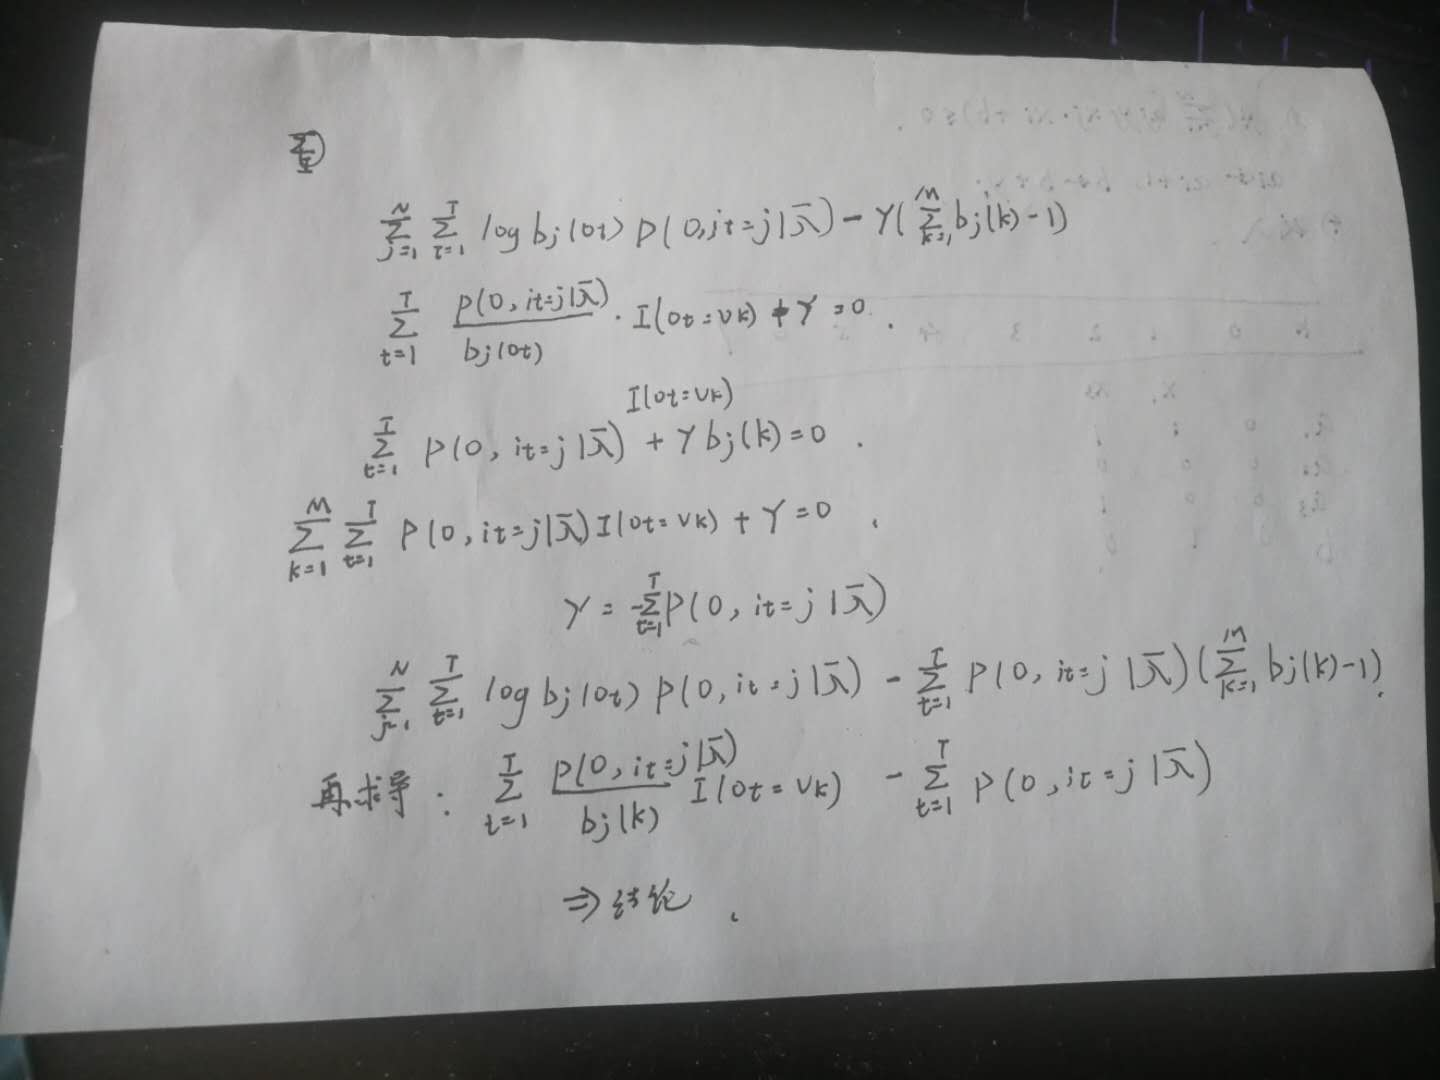 \sum_{j=1}^{N} \sum_{t=1}^{T} log bj(ot) P(O, it=j|\bar{λ}) - γ(\sum_{k=1}^{M} bj(k)-1)
\sum_{t=1}^{T} \frac{P(O, it=j|\bar{λ})}{bj(ot)} · I(ot=vk) + γ = 0.
I(ot=vk)
\sum_{t=1}^{T} P(O, it=j|\bar{λ}) + γ bj(k) = 0.
\sum_{k=1}^{M} \sum_{t=1}^{T} P(O, it=j|\bar{λ}) I(ot=vk) + γ = 0.
γ = -\sum_{t=1}^{T} P(O, it=j|\bar{λ})
\sum_{j=1}^{N} \sum_{t=1}^{T} log bj(ot) P(O, it=j|\bar{λ}) - \sum_{t=1}^{T} P(O, it=j|\bar{λ}) (\sum_{k=1}^{M} bj(k)-1).
再求导: \sum_{t=1}^{T} \frac{P(O, it=j|\bar{λ})}{bj(k)} I(ot=vk) - \sum_{t=1}^{T} P(O, it=j|\bar{λ})
⇒ 结论.